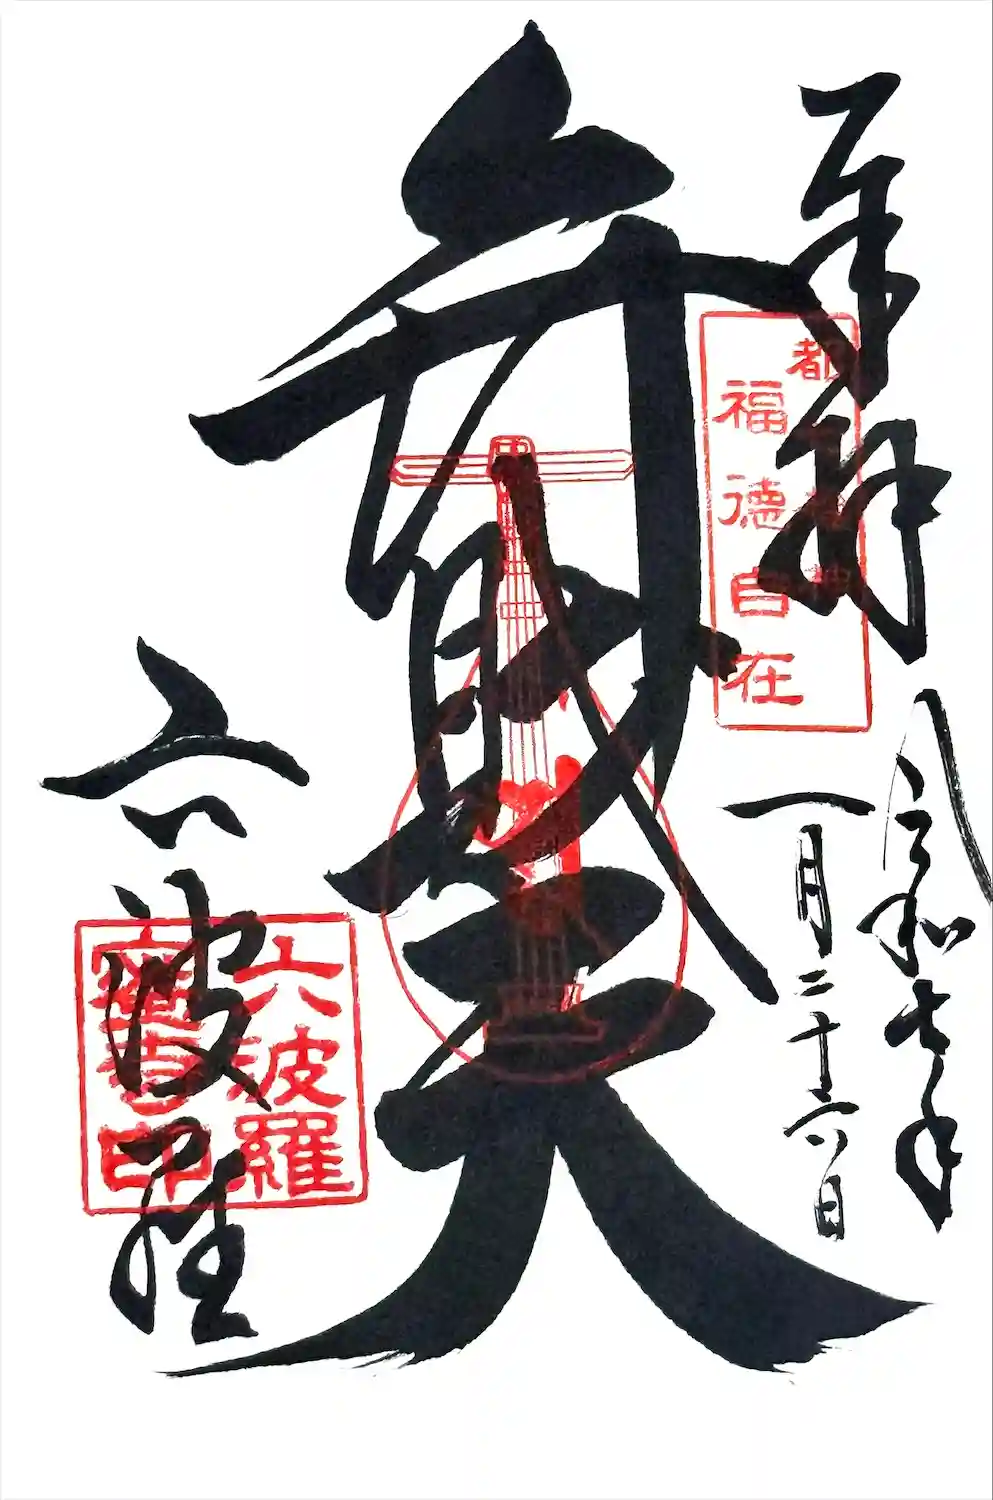 奉拝
令和七年
一月二十六日
都七福神
福徳自在
弁財天
六波羅
六波羅
蜜寺印